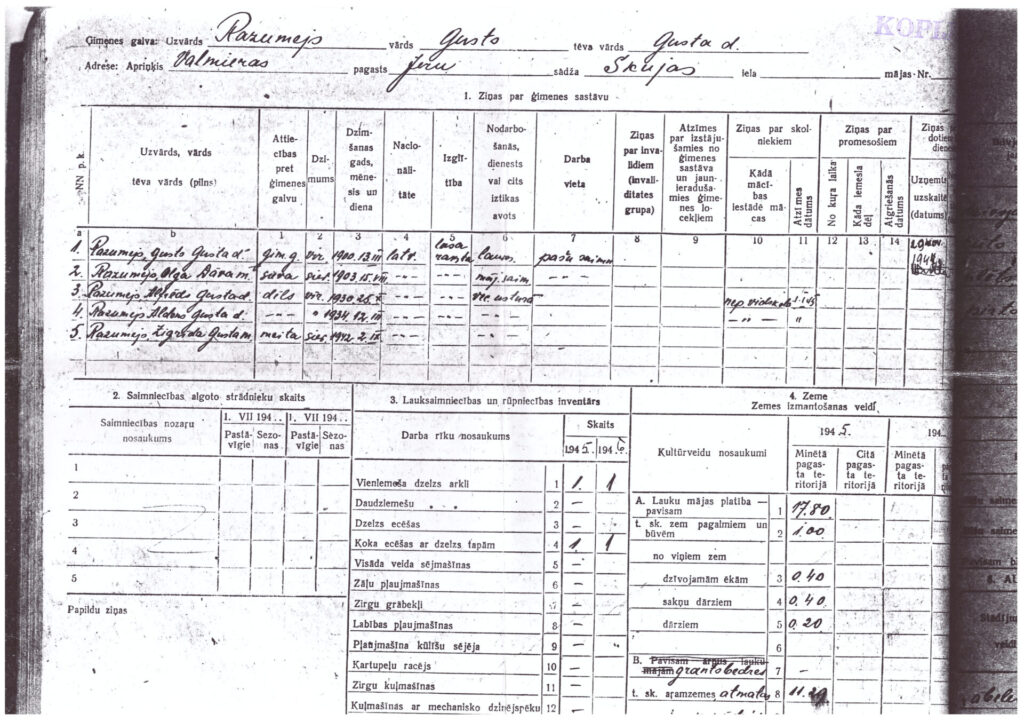 KOPI
Ģimenes galva: Uzvārds Razumejs vārds Gusts tēva vārds Gusta d.
Adrese: Apriņķis Valmieras pagasts Jeru sādža Skujas iela mājas Nr.
1. Ziņas par ģimenes sastāvu
NN p. k.
Uzvārds, vārds
tēva vārds (pilns)
Attiecības pret ģimenes galvu
Dzimums
Dzimšanas gads, mēnesis un diena
Nacionālitāte
Izglītība
Nodarbošanās, dienests vai cits iztikas avots
Darba vieta
Ziņas par invalīdiem (invaliditates grupa)
Atzīmes par izstājušamies no ģimenes sastāva un jaunieradušamies ģimenes locekļiem
Ziņas par skolniekiem
Kādā mācības iestādē mācas
Atzīmes dātums
Ziņas par promesošiem
No kuŗa laika
Kāda iemesla dēļ
Atgriešanās datums
Uzņemts uzskaitē (datums)
a b 1 2 3 4 5 6 7 8 9 10 11 12 13 14
1. Razumejs, Gusts Gusta d. ģim. g. vir. 1900. 13 latv. lasa raksta lauks. pašu saimn.
2. Razumejs, Olga sieva siev. 1903. 15. VII - - - - māj. saim.
3. Razumejs, Alfrēds Gusta d. dēls vir. 1930. 25. - - - -
4. Razumejs Gusta d. - - - " 1934. 12. - - - - - " -
5. Razumejs, Zigrīda Gusta m. meita siev. 1942. 2. - - - -
2. Saimniecības algoto strādnieku skaits
Saimniecības nozaŗu nosaukums
1. VII 194.. 1. VII 194..
Pastāvīgie Sezonas Pastāvīgie Sezonas
1
2
3
4
5
Papildu ziņas
3. Lauksaimniecības un rūpniecības inventārs
Darba rīku nosaukums
Skaits
1945. 1946
Vienlemeša dzelzs arkli 1 1. 1
Daudzlemešu „ 2 –
Dzelzs ecēšas 3 –
Koka ecēšas ar dzelzs tapām 4 1 1
Visāda veida sējmašīnas 5 –
Zāļu pļaujmašīnas 6 –
Zirgu grābekļi 7 –
Labības pļaujmašīnas 8 –
Pļaujmašīna kūlīšu sējēja 9 –
Kartupeļu racējs 10 –
Zirgu kuļmašīnas 11 –
Kuļmašīnas ar mechanisko dzinējspēku 12 –
4. Zeme
Zemes izmantošanas veidi
Kultūrveidu nosaukumi
1945. 194..
Minētā pagasta teritorijā
Citā pagasta teritorijā
Minētā pagasta teritorijā
A. Lauku mājas platība — pavisam 1 17.80
t. sk. zem pagalmiem un būvēm 2 1.00
no viņiem zem
dzīvojamām ēkām 3 0.40
sakņu dārziem 4 0.40
dārziem 5 0.20
6
B. Pavisam ārpus lauku mājām grantsbedres 7 –
t. sk. aŗamzemes, atmatas 8 11.29